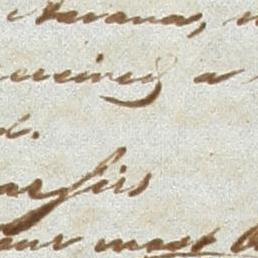 Havana,
received a
d.
ar Sirs
our most